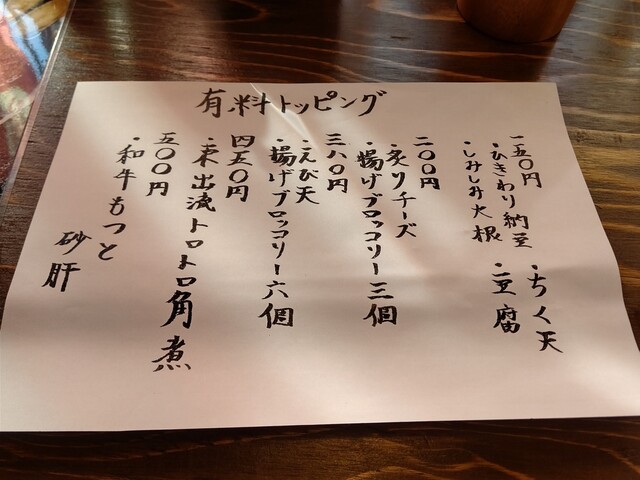 有料トッピング
一五〇円
・ひきわり納豆 ・ちく天
・しみしみ大根 ・豆腐
二〇〇円
・炙りチーズ
・揚げブロッコリー三個
三八〇円
・えび天
・揚げブロッコリー六個
四五〇円
・東出流トロトロ角煮
五〇〇円
・和牛もつと
砂肝